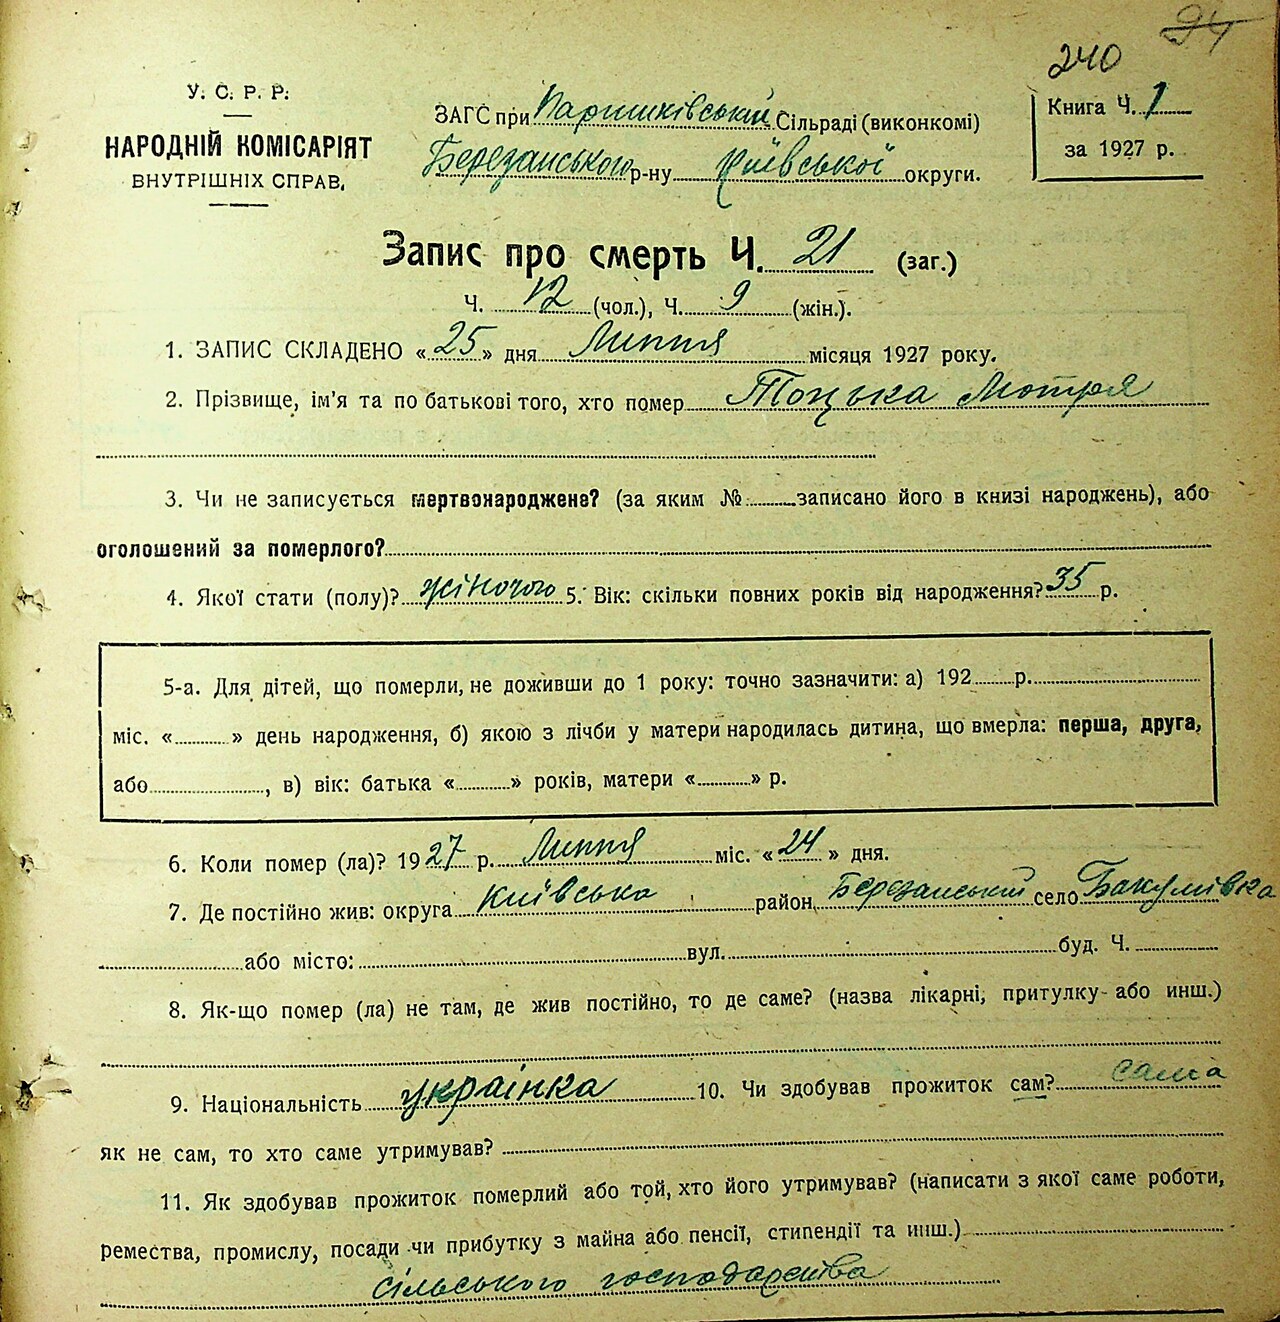 94
240
У. С. Р. Р.
НАРОДНІЙ КОМІСАРІЯТ
ВНУТРІШНІХ СПРАВ.
ЗАГС при Паришківській Сільраді (виконкомі)
Березанського р-ну Київської округи.
Книга Ч. 1
за 1927 р.
Запис про смерть Ч. 21 (заг.)
Ч. 12 (чол.), Ч. 9 (жін.).
1. ЗАПИС СКЛАДЕНО « 25 » дня Липня місяця 1927 року.
2. Прізвище, ім'я та по батькові того, хто помер Тоцька Мотря
3. Чи не записується мертвонароджене? (за яким № записано його в книзі народжень), або
оголошений за померлого?
4. Якої стати (полу)? жіночого 5. Вік: скільки повних років від народження? 35 р.
5-а. Для дітей, що померли, не доживши до 1 року: точно зазначити: а) 192 р.
міс. « » день народження, б) якою з лічби у матери народилась дитина, що вмерла: перша, друга,
або , в) вік: батька « » років, матери « » р.
6. Коли помер (ла)? 1927 р. Липня міс. « 24 » дня.
7. Де постійно жив: округа Київська район Березанський село Бакумівка
або місто: вул. буд. Ч.
8. Як-що помер (ла) не там, де жив постійно, то де саме? (назва лікарні, притулку або инш.)
9. Національність українка 10. Чи здобував прожиток сам? сама
як не сам, то хто саме утримував?
11. Як здобував прожиток померлий або той, хто його утримував? (написати з якої саме роботи,
ремества, промислу, посади чи прибутку з майна або пенсії, стипендії та инш.)
сільського господарства